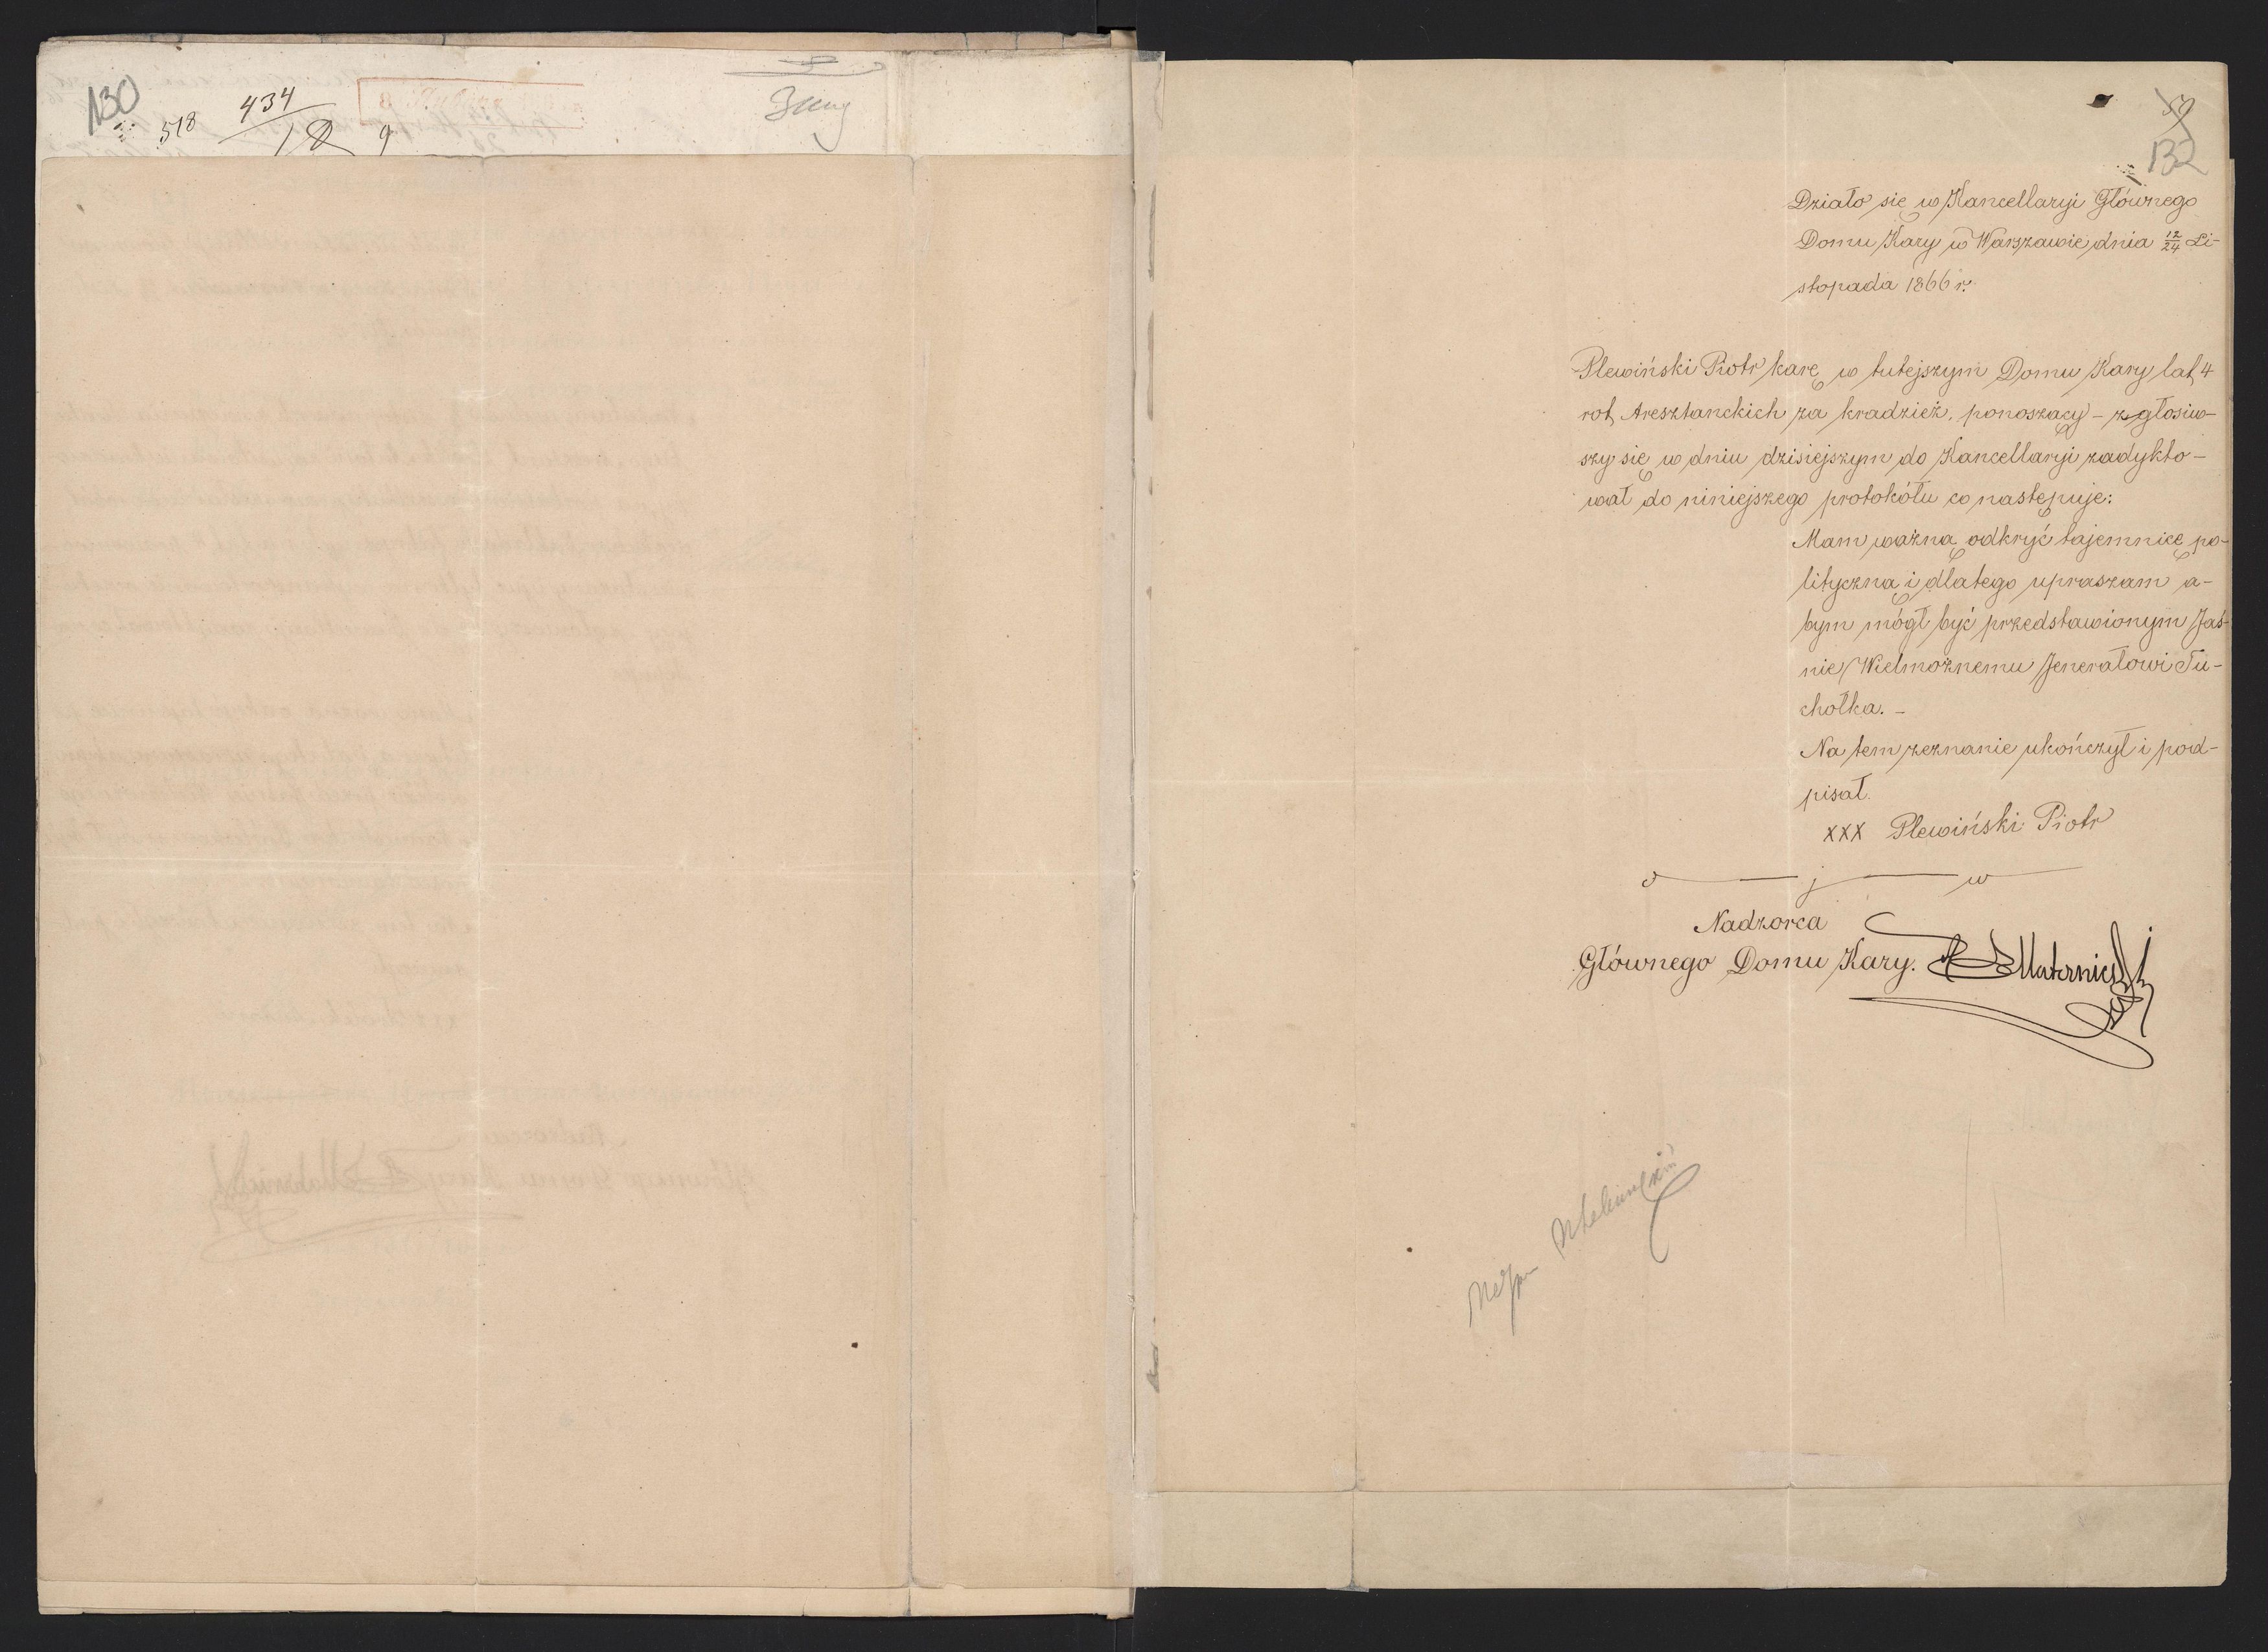 130
518
434
18
9
59
132
Działo się w Kancellaryi Głównego
Domu Kary w Warszawie dnia 12/24 Li-
stopada 1866 r.
Plewiński Piotr karę w tutejszym Domu Kary lat 4
rot Aresztanckich za kradzież, ponoszący – zgłosiw-
szy się w dniu dzisiejszym do Kancellaryi zadykto-
wał do niniejszego protokółu co następuje:
Mam ważną odkryć tajemnicę po-
lityczną i dlatego upraszam a-
bym mógł być przedstawionym Jaś-
nie Wielmożnemu Jenerałowi Tu-
chołka. –
Na tem zeznanie ukończył i pod-
pisał.
xxx Plewiński Piotr
d j w
Nadzorca
Głównego Domu Kary.